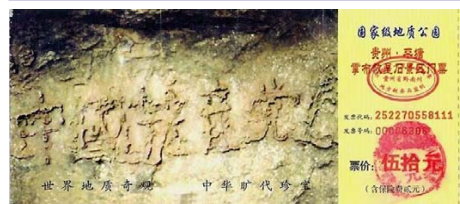 中國共产党
世界地质奇观 中华旷代珍宝
国家级地质公园
贵州·平塘
掌布藏字石景区门票
发票代码: 252270558111
发票号码: 00006306
票价: 伍拾元
(含保险费贰元)